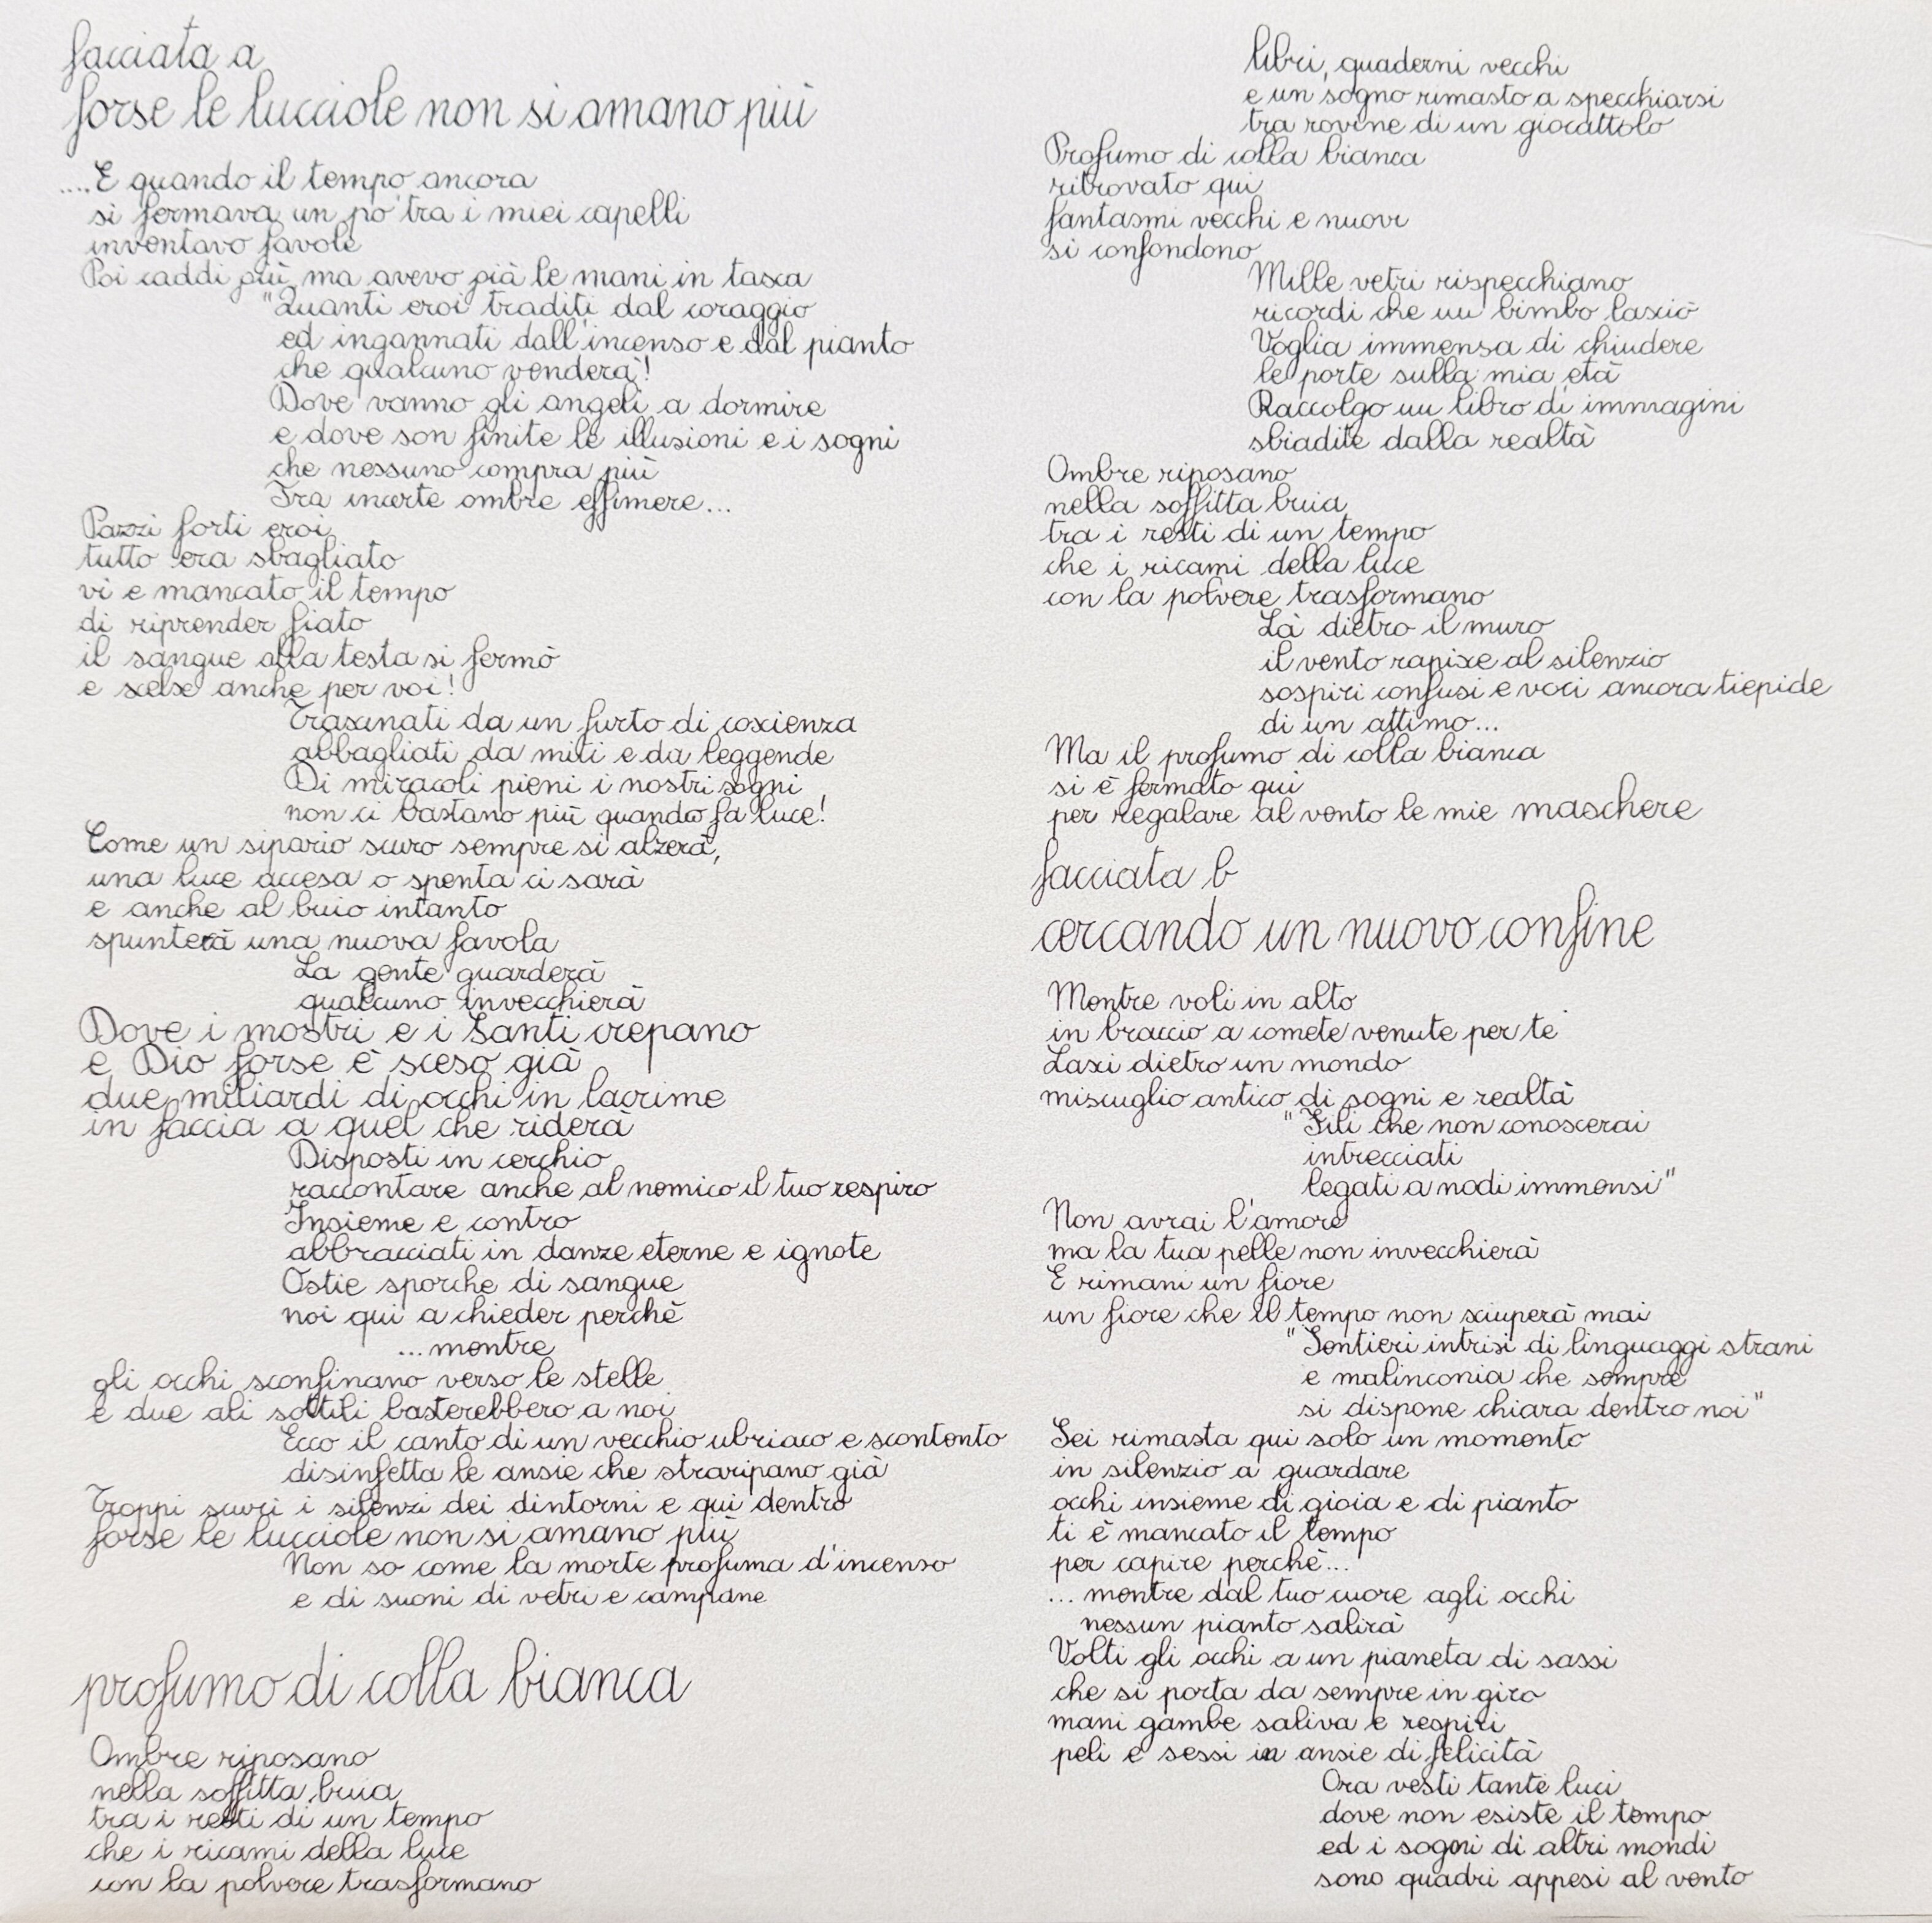 facciata a
forse le lucciole non si amano più
....E quando il tempo ancora
si fermava un po' tra i miei capelli
inventavo favole
Poi caddi giù ma avevo già le mani in tasca
"Quanti eroi traditi dal coraggio
ed ingannati dall'incenso e dal pianto
che qualcuno venderà!
Dove vanno gli angeli a dormire
e dove son finite le illusioni e i sogni
che nessuno compra più
Tra incerte ombre effimere...
Pazzi forti eroi
tutto era sbagliato
vi e mancato il tempo
di riprender fiato
il sangue alla testa si fermò
e scelse anche per voi!
Trascinati da un furto di coscienza
abbagliati da miti e da leggende
Di miracoli pieni i nostri sogni
non ci bastano più quando fa luce!
Come un sipario scuro sempre si alzerà,
una luce accesa o spenta ci sarà
e anche al buio intanto
spunterà una nuova favola
La gente guarderà
qualcuno invecchierà
Dove i mostri e i Santi crepano
e Dio forse è sceso già
due miliardi di occhi in lacrime
in faccia a quel che riderà
Disposti in cerchio
raccontare anche al nemico il tuo respiro
Insieme e contro
abbracciati in danze eterne e ignote
Ostie sporche di sangue
noi qui a chieder perchè
...mentre
gli occhi sconfinano verso le stelle
e due ali sottili basterebbero a noi
Ecco il canto di un vecchio ubriaco e scontento
disinfetta le ansie che straripano già
Troppi scuri i silenzi dei dintorni e qui dentro
forse le lucciole non si amano più
Non so come la morte profuma d'incenso
e di suoni di vetri e campane
profumo di colla bianca
Ombre riposano
nella soffitta buia
tra i resti di un tempo
che i ricami della luce
con la polvere trasformano
libri, quaderni vecchi
e un sogno rimasto a specchiarsi
tra rovine di un giocattolo
Profumo di colla bianca
ritrovato qui
fantasmi vecchi e nuovi
si confondono
Mille vetri rispecchiano
ricordi che un bimbo lasciò
Voglia immensa di chiudere
le porte sulla mia età
Raccolgo un libro di immagini
sbiadite dalla realtà
Ombre riposano
nella soffitta buia
tra i resti di un tempo
che i ricami della luce
con la polvere trasformano
Là dietro il muro
il vento rapisce al silenzio
sospiri confusi e voci ancora tiepide
di un attimo...
Ma il profumo di colla bianca
si è fermato qui
per regalare al vento le mie maschere
facciata b
cercando un nuovo confine
Mentre voli in alto
in braccio a comete venute per te
Lasci dietro un mondo
miscuglio antico di sogni e realtà
"Fili che non conoscerai
intrecciati
legati a nodi immensi"
Non avrai l'amore
ma la tua pelle non invecchierà
E rimani un fiore
un fiore che il tempo non sciuperà mai
"Sentieri intrisi di linguaggi strani
e malinconia che sempre
si dispone chiara dentro noi"
Sei rimasta qui solo un momento
in silenzio a guardare
occhi insieme di gioia e di pianto
ti è mancato il tempo
per capire perchè...
... mentre dal tuo cuore agli occhi
nessun pianto salirà
Volti gli occhi a un pianeta di sassi
che si porta da sempre in giro
mani gambe saliva e respiri
peli e sessi in ansie di felicità
Ora vesti tante luci
dove non esiste il tempo
ed i sogni di altri mondi
sono quadri appesi al vento